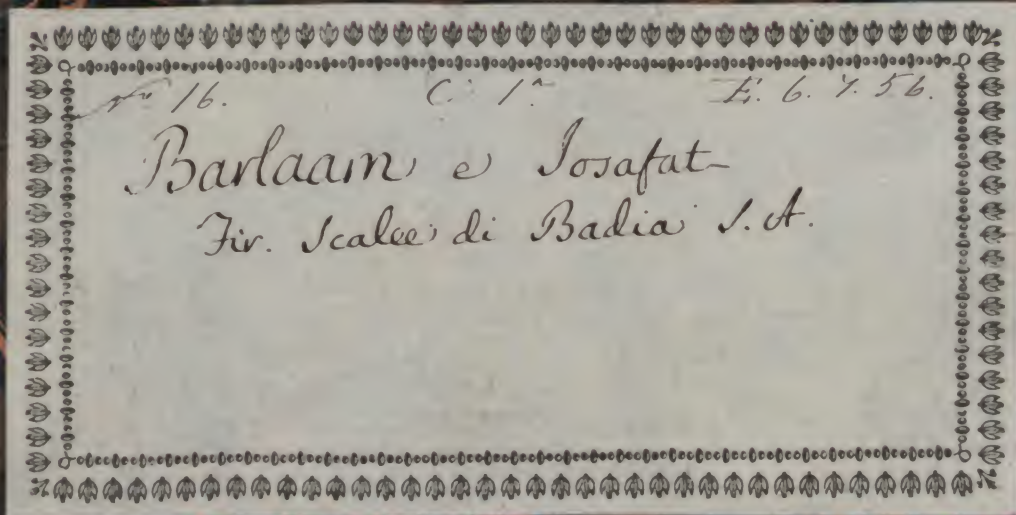 No 16. C. 1a E. 6. 7. 56.
Barlaam e Josafat
Fir. Scalee di Badia S. A.